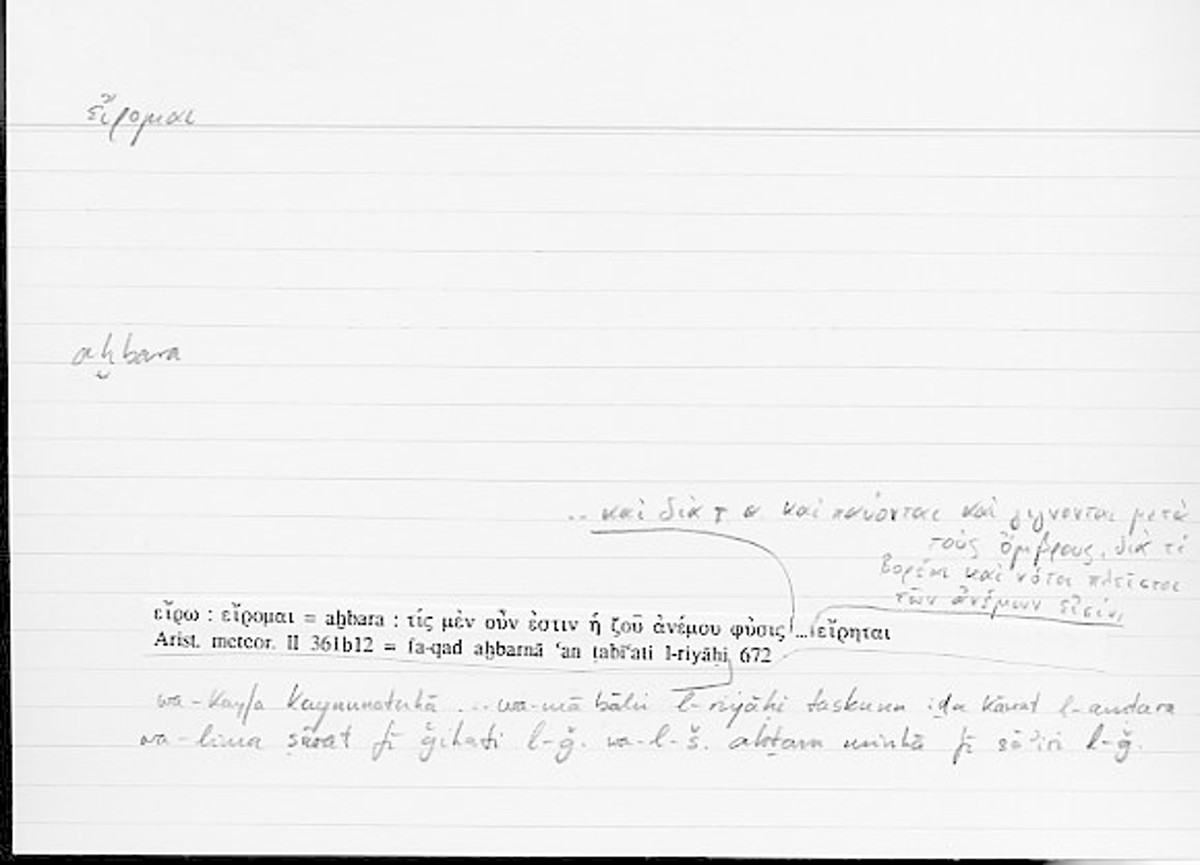 εἴρομαι
aḫbara
... καὶ διὰ τ α καὶ παύονται καὶ γίγνονται μετὰ
τοὺς ὄμβρους, διὰ τί
βορέαι καὶ νότοι πλεῖστοι
τῶν ἀνέμων εἰσίν,
εἴρω : εἴρομαι = aḫbara : τίς μὲν οὖν ἐστιν ἡ ζοῦ ἀνέμου φύσις ... εἴρηται
Arist. meteor. II 361b12 = fa-qad aḫbarnā ʿan ṭabīʿati l-riyāḥi 672
wa-kayfa kaynunatuhā ... wa-mā bālu l-riyāḥi taskunu iḏa kānat l-amṭara
wa-lima ṣārat fī ǧihati l-ǧ. wa-l-š. akṯara minhā fī sāʾiri l-ǧ.